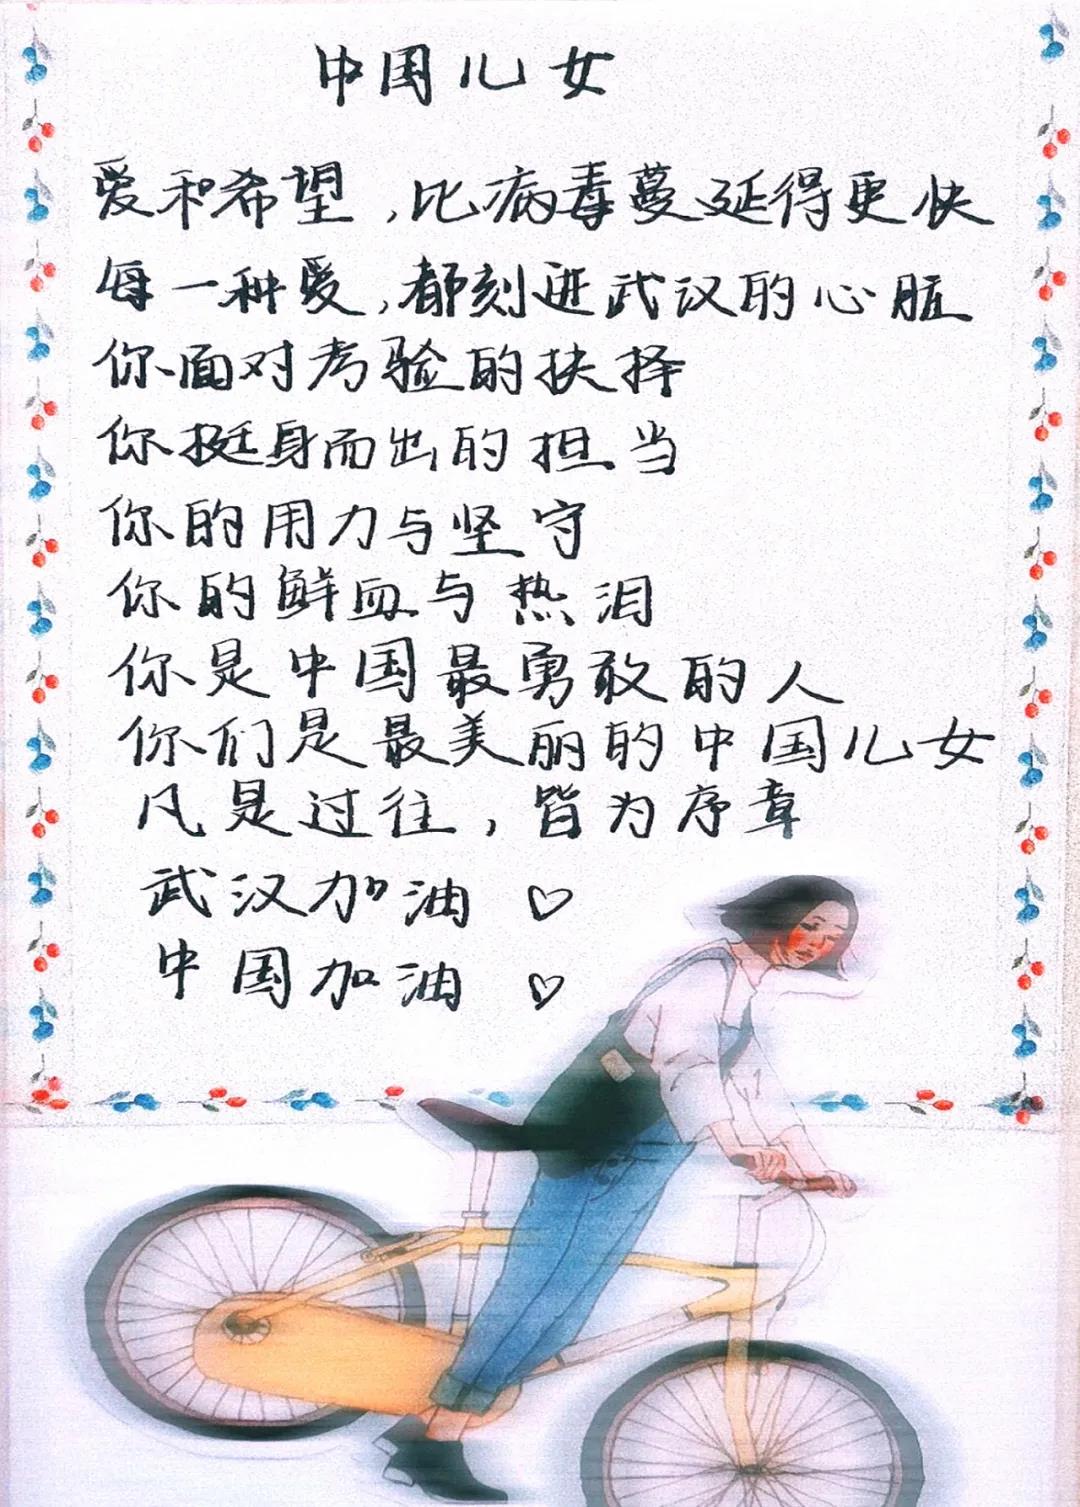 中国儿女
爱和希望，比病毒蔓延得更快
每一种爱，都刻进武汉的心脏
你面对考验的抉择
你挺身而出的担当
你的用力与坚守
你的鲜血与热泪
你是中国最勇敢的人
你们是最美丽的中国儿女
凡是过往，皆为序章
武汉加油 ♡
中国加油 ♡